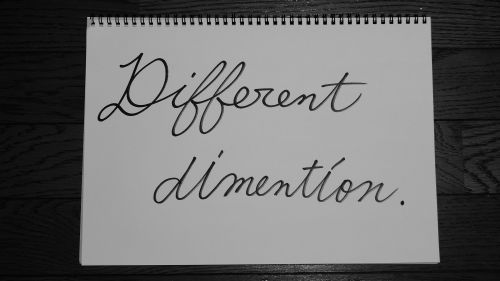 Different
dimention.